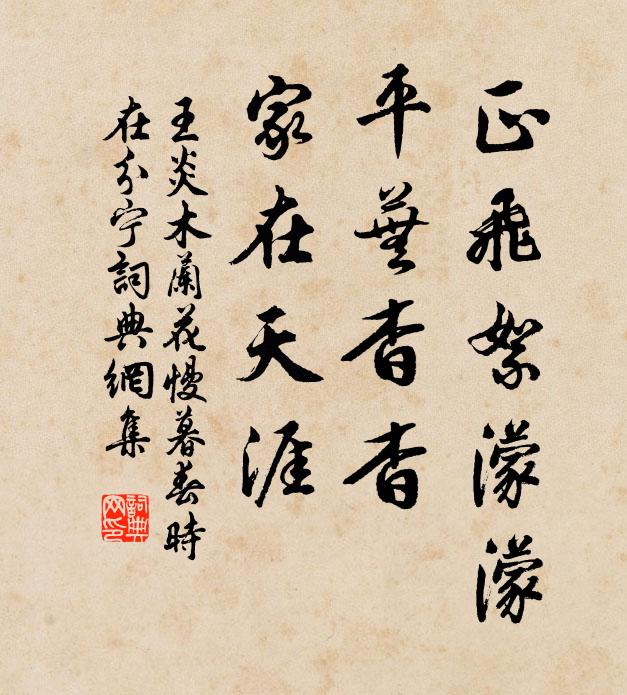 正飛絮濛濛
平蕪杳杳
家在天涯
王炎木蘭花慢暮春時
在分宁詞典網集
詞典网印